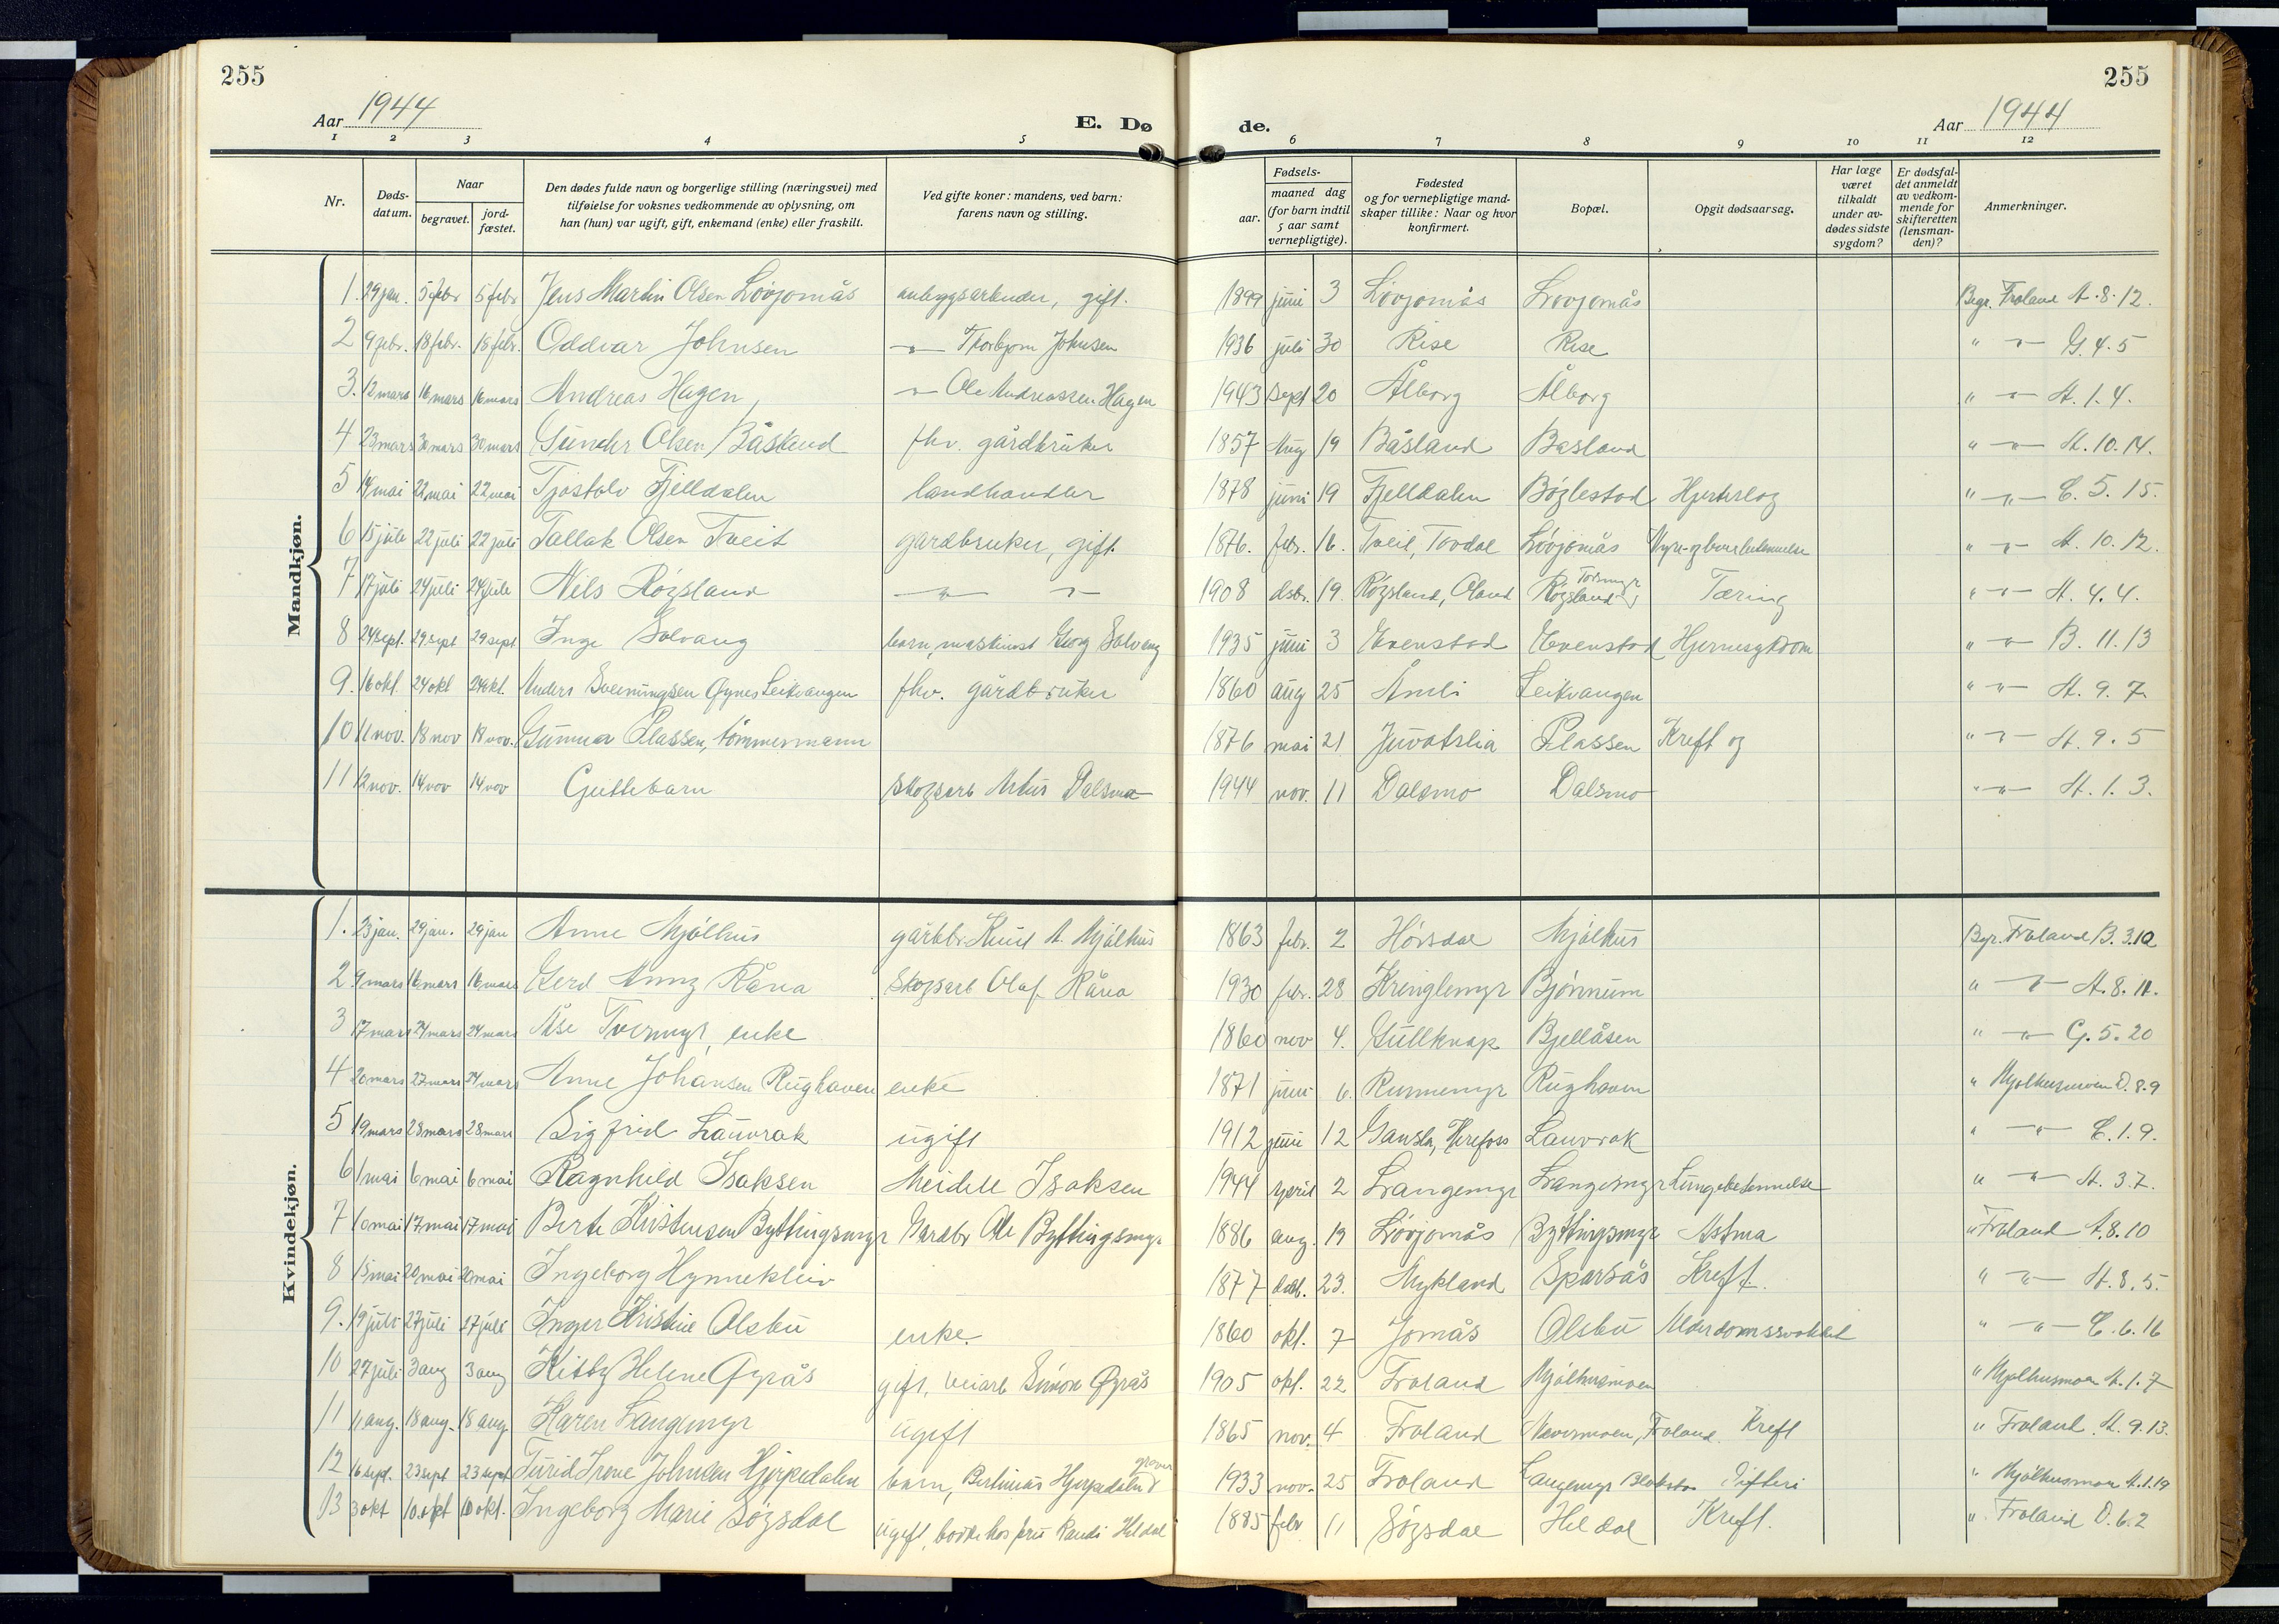 255
255
Aar 1944
E. Dø
de.
Aar 1944
1 2 3 4 5 6 7 8 9 10 11 12
Nr.
Døds-
datum.
Naar
begravet.
jord-
fæstet.
Den dødes fulde navn og borgerlige stilling (næringsvei) med
tilføielse for voksnes vedkommende av oplysning, om
han (hun) var ugift, gift, enkemand (enke) eller fraskilt.
Ved gifte koner: mandens, ved barn:
farens navn og stilling.
Fødsels-
aar.
maaned dag
(for barn indtil
5 aar samt
vernepligtige).
Fødested
og for vernepligtige mand-
skaper tillike: Naar og hvor
konfirmert.
Bopæl.
Opgit dødsaarsag.
Har læge
været
tilkaldt
under av-
dødes sidste
sygdom?
Er dødsfal-
det anmeldt
av vedkom-
mende for
skifteretten
(lensman-
den)?
Anmerkninger.
Mandkjøn.
1. 29 jan. 5 febr 5 febr Jens Martin Olsen Løvjomås anleggsarbeider, gift. 1899 juni 3 Løvjomås Løvjomås Begr. Froland A. 8. 12.
2 9 febr. 18 febr. 18 febr. Oddvar Johnsen " Thorbjørn Johnsen 1936 juli 30 Rise Rise " " G. 4. 5
3. 12 mars 16 mars 16 mars Andreas Hagen, " Ole Andreassen Hagen 1943 sept 20 Ålborg Ålborg " " A. 1. 4.
4 23 mars 30 mars 30 mars Gunder Olsen Båsland fhv. gårdbruker 1857 Aug 19 Båsland Basland " " A. 10. 14.
5 14 mai 22 mai 22 mai Tjøstolv Fjelldalen landhandler 1878 juni 19 Fjelldalen Bøylestad Hjerteslag " " C. 5. 15.
6 15 juli 22 juli 22 juli Tallak Olsen Tveit gardbruker, gift. 1876. febr. 16. Tveit, Tovdal Løvjomås " " A. 10. 12.
7 17 juli 24 juli 24 juli Nils Røysland " " 1908 desbr. 19. Røysland, Øland Røysland Tæring " " A. 4. 4.
8 24 sept. 29 sept 29 sept Inge Solvang barn, maskinist Georg Solvang 1935 juni 3 Evenstad Evenstad Hjernesykdom " " B. 11. 13
9. 16 okt. 24 okt 24 okt. Anders Sveinungsen Øynes Leikvangen fhv. gårdbruker 1860 aug 25 Åmli Leikvangen " " A. 9. 7.
10 11 nov. 18 nov 18 nov. Gunnar Plassen, tømmermann 1876 mai 21 Juvatslia Plassen Kreft og " " A. 9. 5
11 12 nov. 14 nov 14 nov Guttebarn skogsarb Dalsmo 1944 nov. 11 Dalsmo Dalsmo " " A. 1. 3.
Kvindekjøn.
1. 23 jan. 29 jan. 29 jan Anne Mjålhus gårdbr. Knut A. Mjålhus 1863 febr. 2 Hørsdal Mjålhus Begr. Froland B. 3. 10
2 9 mars 16 mars 16 mars Gerd Anny Råna Skogsarb Olaf Råna 1930 febr. 28 Kringlemyr Bjørnum " " A. 8. 11.
3 17 mars 24 mars 24 mars Åse Tvermyr, enke 1860 nov 4. Gullknap Bjellåsen " " G. 5. 20
4 20 mars 27 mars 27 mars Anne Johansen Rughaven enke 1871 juni 6. Runnemyr Rughaven " Mjølhusmoen D. 8. 9
5 19 mars 28 mars 28 mars Sigfrid Lauvrak ugift 1912 juni 12 Gausla, Herefoss Lauvrak " " C. 1. 9.
6 1 mai 6 mai 6 mai Ragnhild Isaksen Meidell Isaksen 1944 april 2 Langemyr Langemyr Lungebetennelse " " A. 3. 7.
7 10 mai 17 mai 17 mai Berte Kristensen Byttingsmyr Gardbr Ole Byttingsmyr 1886 aug. 19 Løvjomås Byttingsmyr Astma " Froland A. 8. 10
8 15 mai 20 mai 20 mai Ingeborg Hynnekleiv 1877 23. Mykland Sparsås Kreft. " " A. 8. 5.
9. 19 juli 27 juli 27 juli Inger Kristine Olsbu enke. 1860 okt. 7 Jomås Olsbu Alderdomssvakhet " " C. 6. 16
10 27 juli 3 aug 3 aug Kitty Helene Øyrås gift, veiarb Simon Øyrås 1905 okt. 22 Froland Mjålhusmoen " Mjølhusmoen A. 1. 7
11 11 aug. 18 aug. 18 aug. Karen Langemyr ugift 1865 nov. 4 Froland Nevermoen, Froland. Kreft " Froland. A. 9. 13.
12 16 sept. 23 sept 23 sept Turid Irene Johnsen Hjerpedalen barn, Bertinius Hjerpedalen 1933 nov. 25 Froland Langemyr Blakstad Difteri " Mjålhusmoen A. 1. 19
13 3 okt 10 okt 10 okt. Ingeborg Marie Søysdal ugift, bodde hos fru Randi Heldal 1885 febr 11 Søysdal Heldal Kreft. " Froland D. 6. 2